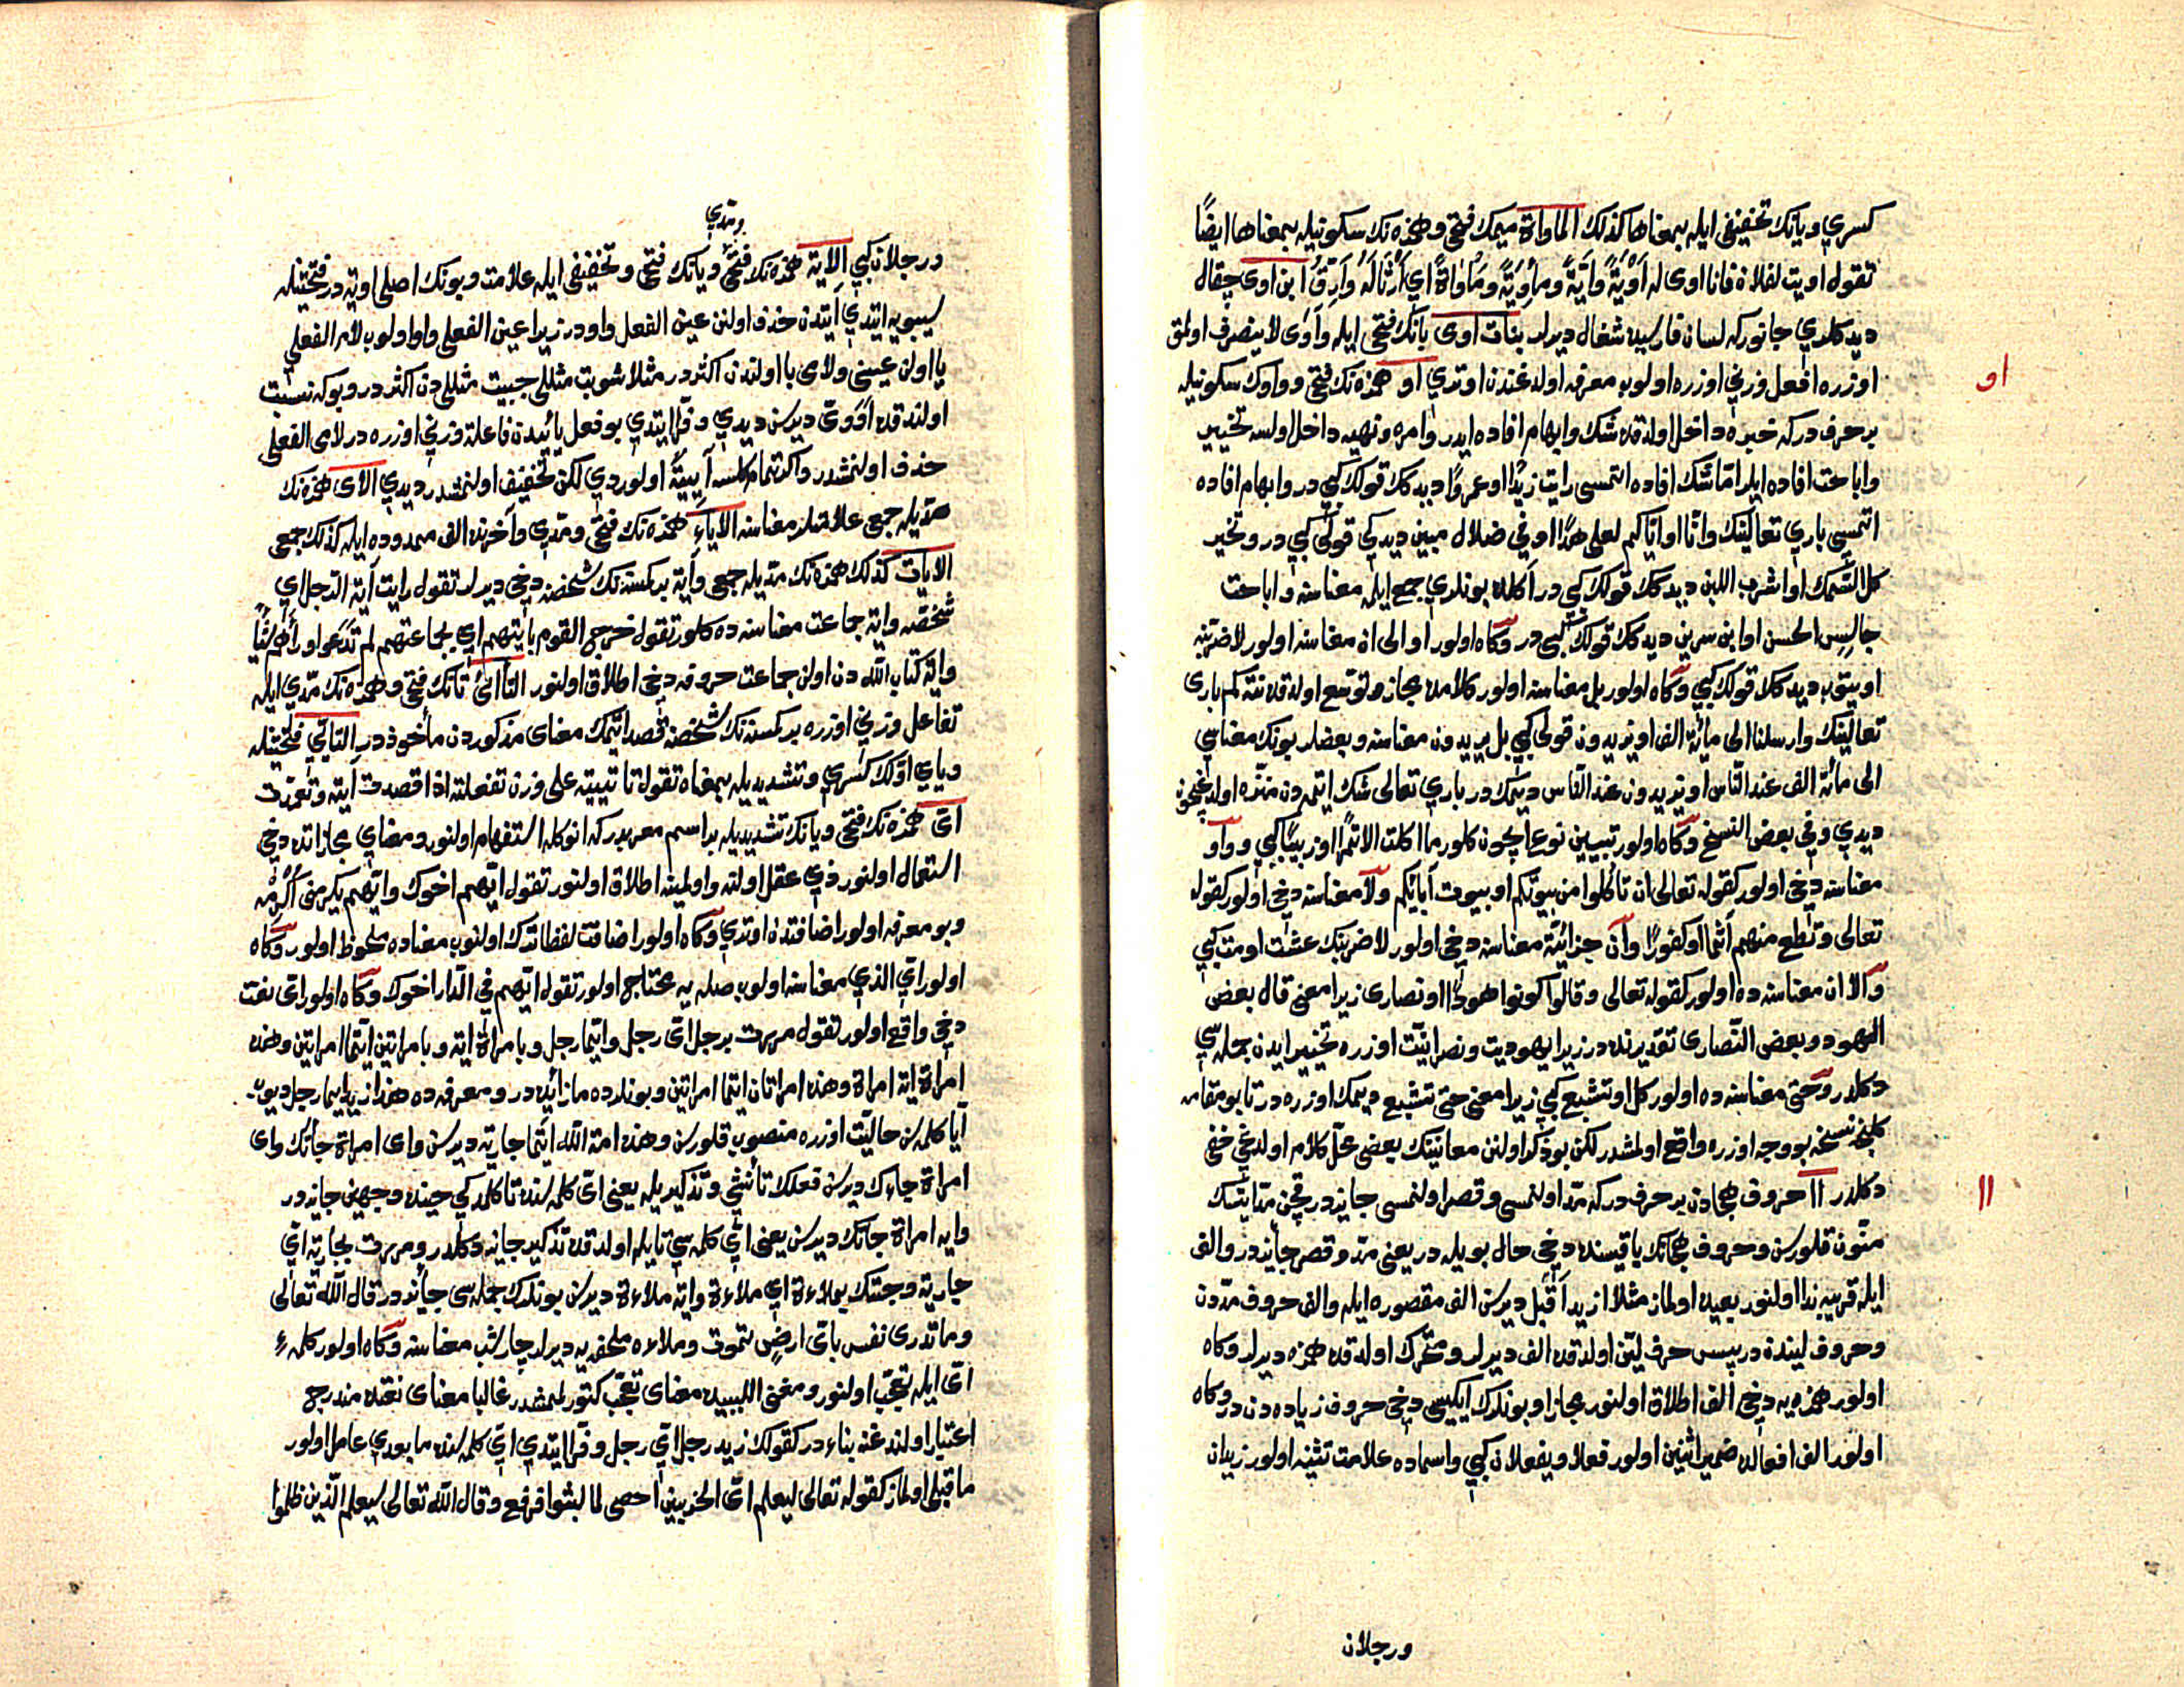 كسري ويانك تخفيفى ايله بمعناها كذلك الماواة ميمك فتحى وهمزه نك سكونيله بمعناها ايضًا
تقول اويت لفلان فانا اوى له اَوْيَةً وايَةً ومأوِيَةً ومَأْوَاةً اي اَرْثَا لَهُ وَاَرِقُّ ابن اوى چقال
ديدكلري جانوركه لسان فارسيده شغال ديرلر بنات اوى يانك فتحى ايله وآوى لا ينصرف اولمق
او
اوزره افعل وزني اوزره اولوب معرفه اولدغندن اوتري او همزه نك فتحى وواوك سكونيله
بر حرف دركه خبره داخل اولدقده شك وابهام افاده ايدر وامره ونهيه داخل اولسه تخيير
واباحت افاده ايلر امّا شك افاده اتمسى رايت زيدًا او عمروًا ديدكك قولك كبي در وابهام افاده
اتمسى باري تعالينك وانّا او اياكم لعلى هدًا او في ضلال مبين ديدكي قولى كبي در وتخير
كل السّمك او اشرب اللبن ديدكك قولك كبي در اكلده بونلري جمع ايله معناسنه واباحت
جالِسِ الحسن او ابن سرين ديدكك قولك كبي در وكاه اولور او الى ان معناسنه اولور لاضربنه
او يتوب ديدكلا قولك كبي وكاه اولور بل معناسنه اولور كلامده مجاز وتوسع اولدقده نته كم بارى
تعالينك وارسلنا الى مائة الف او يزيدون قولى كبي بل يزيدون معناسنه وبعضلر بونك معناسي
الى مائة الف عند النّاس او يزيدون عند النّاس ديمك در باري تعالى شك ايتمدن منزه اولدغيچون
ديدي وفي بعض النسخ وكاه اولور تبيين نوع ايچون كلور ما اكلت الا تمرًا او زبيبًا كبي وواو
معناسنه دخى اولور كقوله تعالى ان تأكلوا من بيوتكم او بيوت آبائكم ولا معناسنه دخى اولور كقوله
تعالى وتطع منهم آثما او كفورًا وان جزائيّة معناسنه دخى اولور لاضربنك عشت او مت كبي
والا ان معناسنه ده اولور كقوله تعالى وقالوا كونوا هودًا او نصارى زيرا معنى قال بعض
اليهود وبعض النّصارى تقديرنده در زيرا يهوديت ونصرانيّت اوزره تخيير ايدن جمله سي
دكلدر وحتى معناسنه ده اولور كل او تشبع كبي زيرا معنى حتى تشبع ديمك اوزره در تا بو مقامه
كلنجه نسخه بو وجه اوزره واقع اولمشدر لكن بو ذكر اولنن معانينك بعضى محلّ كلام اولدغى خفى
اا
دكلدر اا حروف هجادن بر حرف دركه مدّ اولنمسى وقصر اولنمسى جايزدر قچن مد ايتسك
منوّن قلورسن وحروف هجانك باقيسنده دخى حال بويله در يعنى مدّ وقصر جايزدر والف
ايله قريبه ندا اولنور بعيده اولماز مثلا ازيد اَقْبل ديرسن الف مقصوره ايله والف حروف مدّدن
وحروف ليندن در پس حرف لين اولدقده الف ديرلر ومتحرك اولدقده همزه ديرلر وكاه
اولور همزه يه دخى الف اطلاق اولنور مجازا وبونلرك ايكيسى دخى حروف زياده دن در وكاه
اولور الف افعالده ضمير اثنين اولور فعلا ويفعلان كبي واسماده علامت تثنيه اولور زيدان
ورجلان
ومدي
ورجلان كبي الاية همزه نك فتحى ويانك فتحى وتخفيفى ايله علامت وبونك اصلى اوية در فتحتينله
سيبويه ايتدي آيتدن حذف اولنن عين الفعل واو در زيرا عين الفعلى واو اولوب لام الفعلى
يا اولن عينى ولامى يا اولندن اكثر در مثلا شويت مثللى حييت مثللردن اكثر در وبوكه نسبت
اولندقده اَوَوىّ ديرسن ديدي وفرّا ايتدي بو فعل يائيدن فاعلة وزني اوزره در لامى الفعلى
حذف اولنمشدر واكر تمام كلسه آيِيَةً اولوردي لكن تخفيف اولنمشدر ديدي الاى همزه نك
مدّيله جمعى علامتلر معناسنه الاياء همزه نك فتحى ومدّي وآخرنده الف ممدوده ايله كذلك جمعى
الايات كذلك همزه نك مدّيله جمعى وآية بر كمسنه نك شخصنه دخى ديرلر تقول رايت آية الرّجل اي
شخصه واية جماعت معناسنه ده كلور تقول خرج القوم بايتهم اي بجماعتهم لم تدعوا وراءهم شيًا
واية كتاب الله دن اولن جماعت حروفه دخى اطلاق اولنور التأائى تانك فتحى وهمزه نك مدّي ايله
تفاعل وزني اوزره بر كمسنه نك شخصنه قصد ايتمك معناى مذكوردن مأخوذدر التايّي فتحتينله
وياي اوّلك كسري وتشديديله بمعناه تقول تاييته على وزن تفعلته اذا قصدت آيته وتعمّدت
اىّ همزه نك فتحى ويانك تشديديله بر اسم معربدركه انوكله استفهام اولنور ومعناي مجازاتده دخى
استعمال اولنور ذي عقل اولنه واولمينه اطلاق اولنور تقول ايّهم اخوك وايّهم يكرمنى اُكرِمْه
وبو معرفه اولور اضافتدن اوتري وكاه اولور اضافت لفظا ترك اولنوب معناده ملحوظ اولور وكاه
اولور ايّ الذي معناسنه اولوب صله يه محتاج اولور تقول ايّهم في الدّار اخوك وكاه اولور اىّ نعت
دخى واقع اولور تقول مررت برجل اىّ رجل وايّما رجل وبامراة اية وبامراتين ايّتما امراتين وهذه
امراة اية امراة وهذه امراتان ايّتما امراتين وبونلرده ما زائده در ومعرفه ده هذا زيد ايما رجل ديوب
ايا كلمه سن حاليّت اوزره منصوب قلورسن وهذه امة الله ايّتما جارية ديرسن واى امراة جاءتك واى
امراة جاءك ديرسن فعلك تأنيثى وتذكيريله يعنى اىّ كلمه سنده تا كلدكي حينده وجهين جايزدر
واية امراة جاءتك ديرسن يعنى ايّ كلمه سي تا ايله اولدقده تذكير جايز دكلدر ومررت بجارية ايّ
جارية وجئتك بملاءة اي ملاءة واية ملاءة ديرسن بونلرك جمله سى جائزدر قال الله تعالى
وما تدرى نفس باىّ ارضٍ تموت وملاءه ملحفه يه ديرلر چارشب معناسنه وكاه اولور كلمه ء
اىّ ايله تعجّب اولنور ومغنى اللبيبده معناى تعجّب كتورلممشدر غالبا معناى نعتده مندرج
اعتبار اولندغنه بناء در كقولك زيد رجل ايّ رجل وفرّا ايتدي ايّ كلمه سنده ما بعدي عامل اولور
ما قبلى اولماز كقوله تعالى ليعلم اىّ الحزبين احصى لما لبثوا فرفع وقال الله تعالى سيعلم الّذين ظلموا